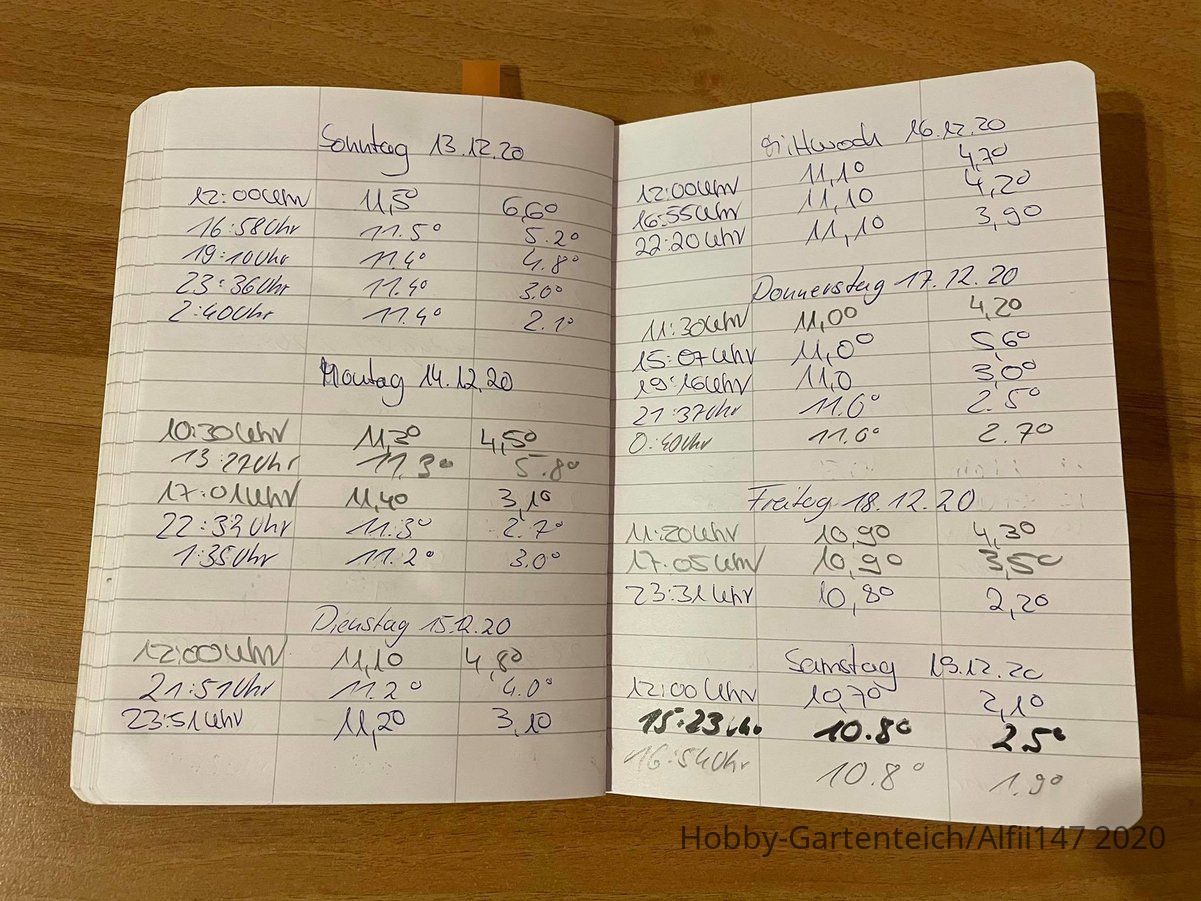 Sonntag 13.12.20
12:00Uhr 11,5° 6,6°
16:58Uhr 11.5° 5.2°
19:10Uhr 11.4° 4.8°
23:36Uhr 11.4° 3.0°
2:40Uhr 11.4° 2.1°
Montag 14.12.20
10:30Uhr 11,3° 4,5°
13:27Uhr 11.3° 5.8°
17:01Uhr 11,4° 3,1°
22:33Uhr 11.3° 2.7°
1:35Uhr 11.2° 3.0°
Dienstag 15.12.20
12:00Uhr 11,1° 4,8°
21:51Uhr 11.2° 4.0°
23:51Uhr 11,2° 3,1°
Mittwoch 16.12.20
12:00Uhr 11,1° 4,7°
16:55Uhr 11,1° 4,2°
22:20Uhr 11,1° 3,9°
Donnerstag 17.12.20
11:30Uhr 11,0° 4,2°
15:07Uhr 11,0° 5,6°
19:16Uhr 11,0 3,0°
21:37Uhr 11.0° 2.5°
0:40Uhr 11.0° 2.7°
Freitag 18.12.20
11:20Uhr 10,9° 4,3°
17:05Uhr 10,9° 3,5°
23:31Uhr 10,8° 2,2°
Samstag 19.12.20
12:00Uhr 10,7° 2,1°
15:23Uhr 10.8° 2.5°
16:54Uhr 10.8° 1.9°
Hobby-Gartenteich/Alfii147 2020